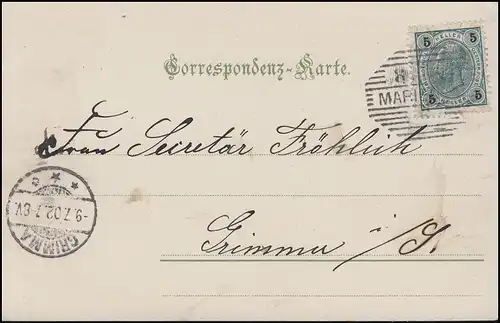 5 HELLER 5
5 5
MARI
Correspondenz-Karte.
Frau Secretär Fröhlich
Grimma i/S.
GRIMMA
-9.7.02.7-8V.
* * c